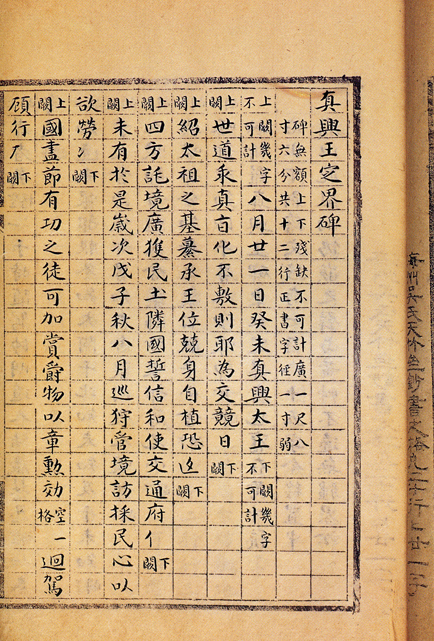 真興王定界碑
碑無額上下殘缺不可計廣一尺八
寸六分共十二行正書字徑一寸弱
上闕幾字不可計八月廿一日癸未真興太王下闕幾字不可計
上闕世道乖真旨化不敷則耶為交競日下闕
上闕紹太祖之基纂承王位兢身自植恐下闕
上闕四方託境廣獲民土隣國誓信和使交通府亻下闕
上闕未有於是歲次戊子秋八月巡狩管境訪採民心以
欲勞下闕
上闕國盡節有功之徒可加賞爵物以章勲効空格一迴駕
顧行下闕